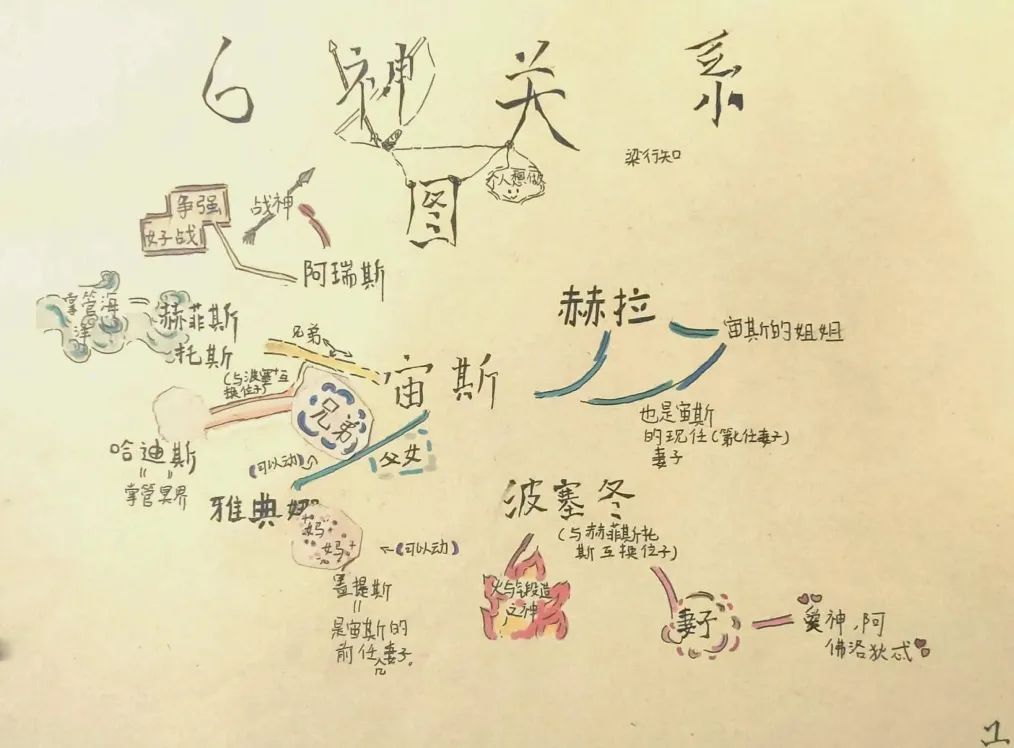 6 神 关 系
图
个人想做
梁行知
争强
好战
战神
阿瑞斯
掌管海
洋
赫菲斯
托斯
兄弟
(与波塞冬互
换位子)
宙斯
赫拉
宙斯的姐姐
也是宙斯
的现任(第七任妻子)
妻子
兄弟
哈迪斯
掌管冥界
(可以动)
父女
雅典娜
妈
妈
(可以动)
是宙斯的
前任妻子。
波塞冬
(与赫菲斯托
斯互换位子)
火与锻造
之神
妻子
爱神,阿
佛洛狄忒
1